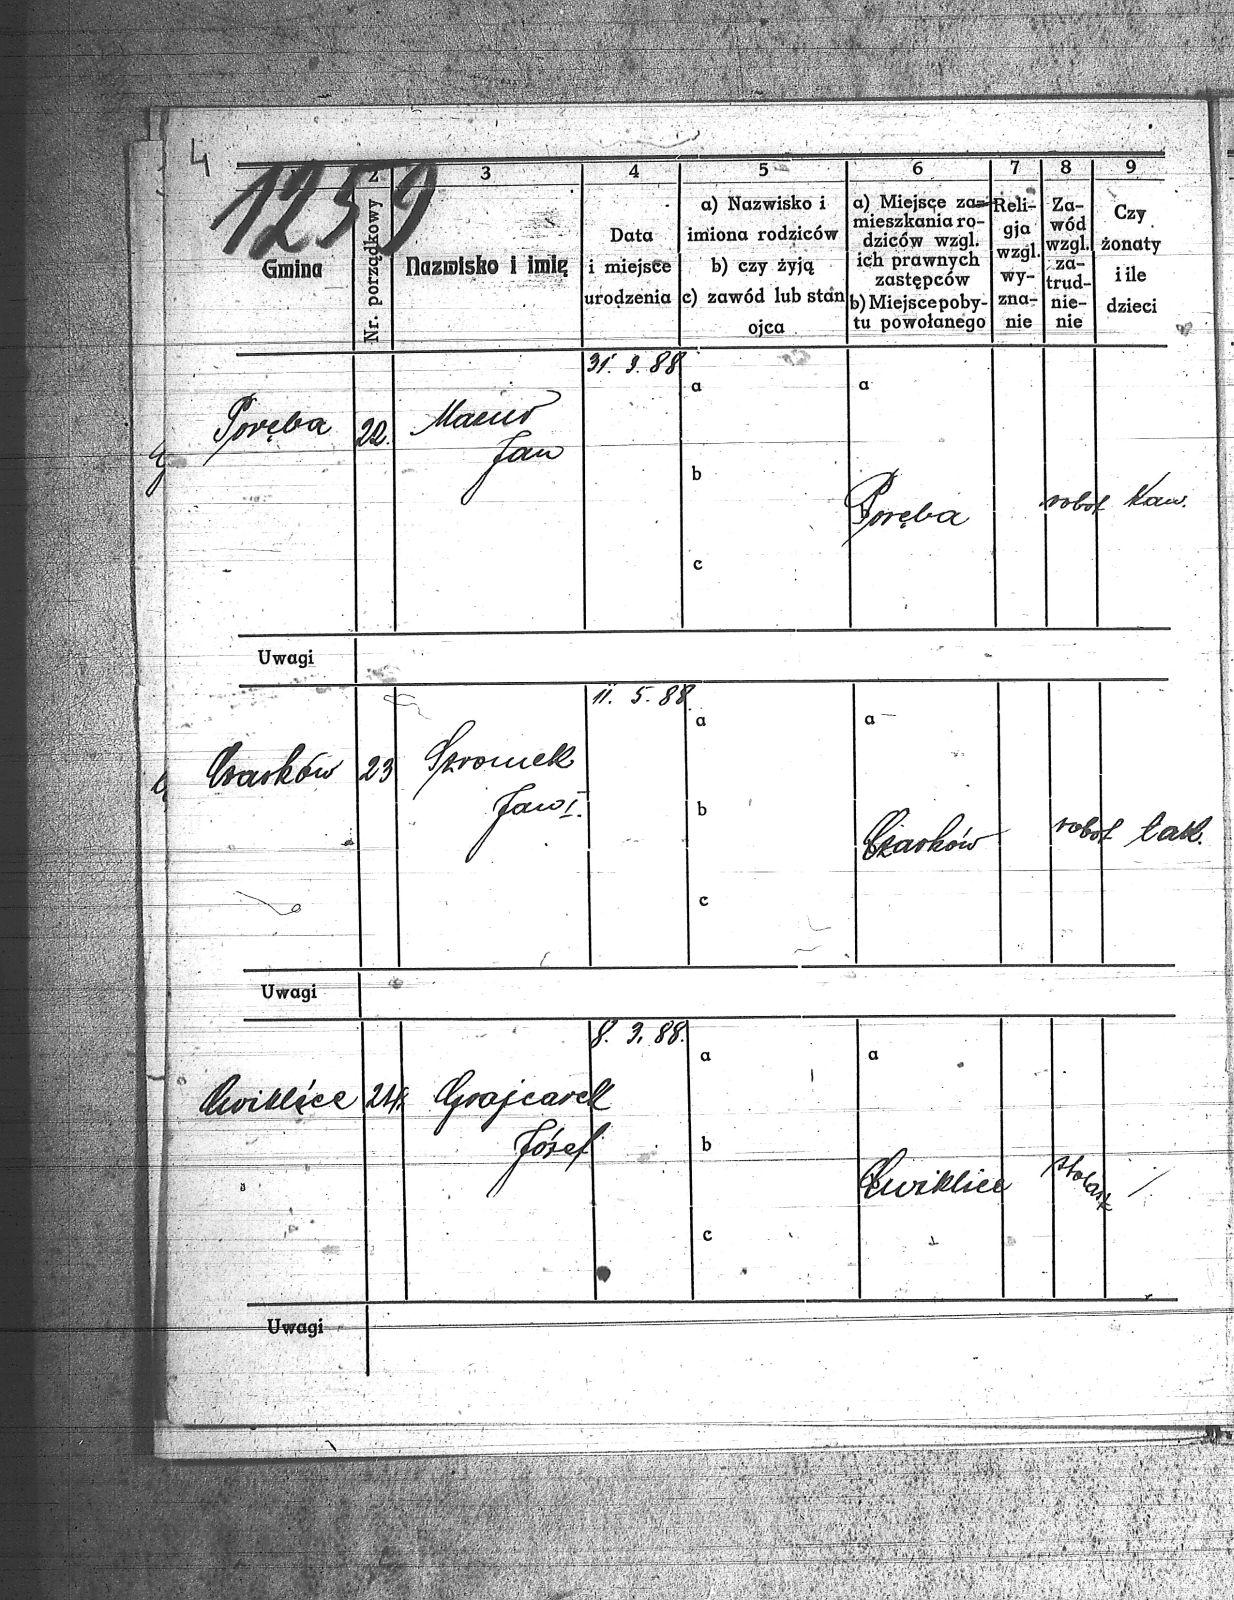 4
1259
2 3 4 5 6 7 8 9
Gmina
Nr. porządkowy
Nazwisko i imię
Data
i miejsce
urodzenia
a) Nazwisko i
imiona rodziców
b) czy żyją
c) zawód lub stan
ojca
a) Miejsce za-
mieszkania ro-
dziców wzgl.
ich prawnych
zastępców
b) Miejsce poby-
tu powołanego
Reli-
gja
wzgl.
wy-
zna-
nie
Za-
wód
wzgl.
za-
trud-
nie-
nie
Czy
żonaty
i ile
dzieci
31. 3. 88
a a
Poręba 22.
Jan
b
Poręba robot Kaw.
c
Uwagi
11. 5. 88
a a
Czarków 23 Szromek
Jan I.
b
Czarków robot tak.
c
Uwagi
8. 3. 88.
a a
Cwiklice 24. Grajcarek
Józef
b
Cwiklice stolarz /
c
Uwagi